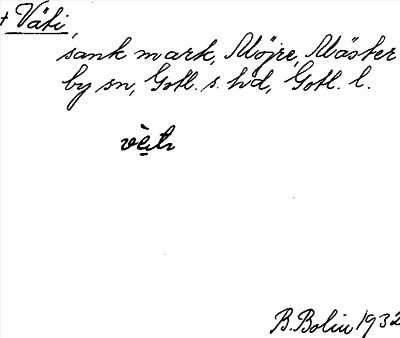 + Väti,
sank mark, Möjre, Mäster
by sn, Gotl. s. hd, Gotl. l.
B. Bolin 1932